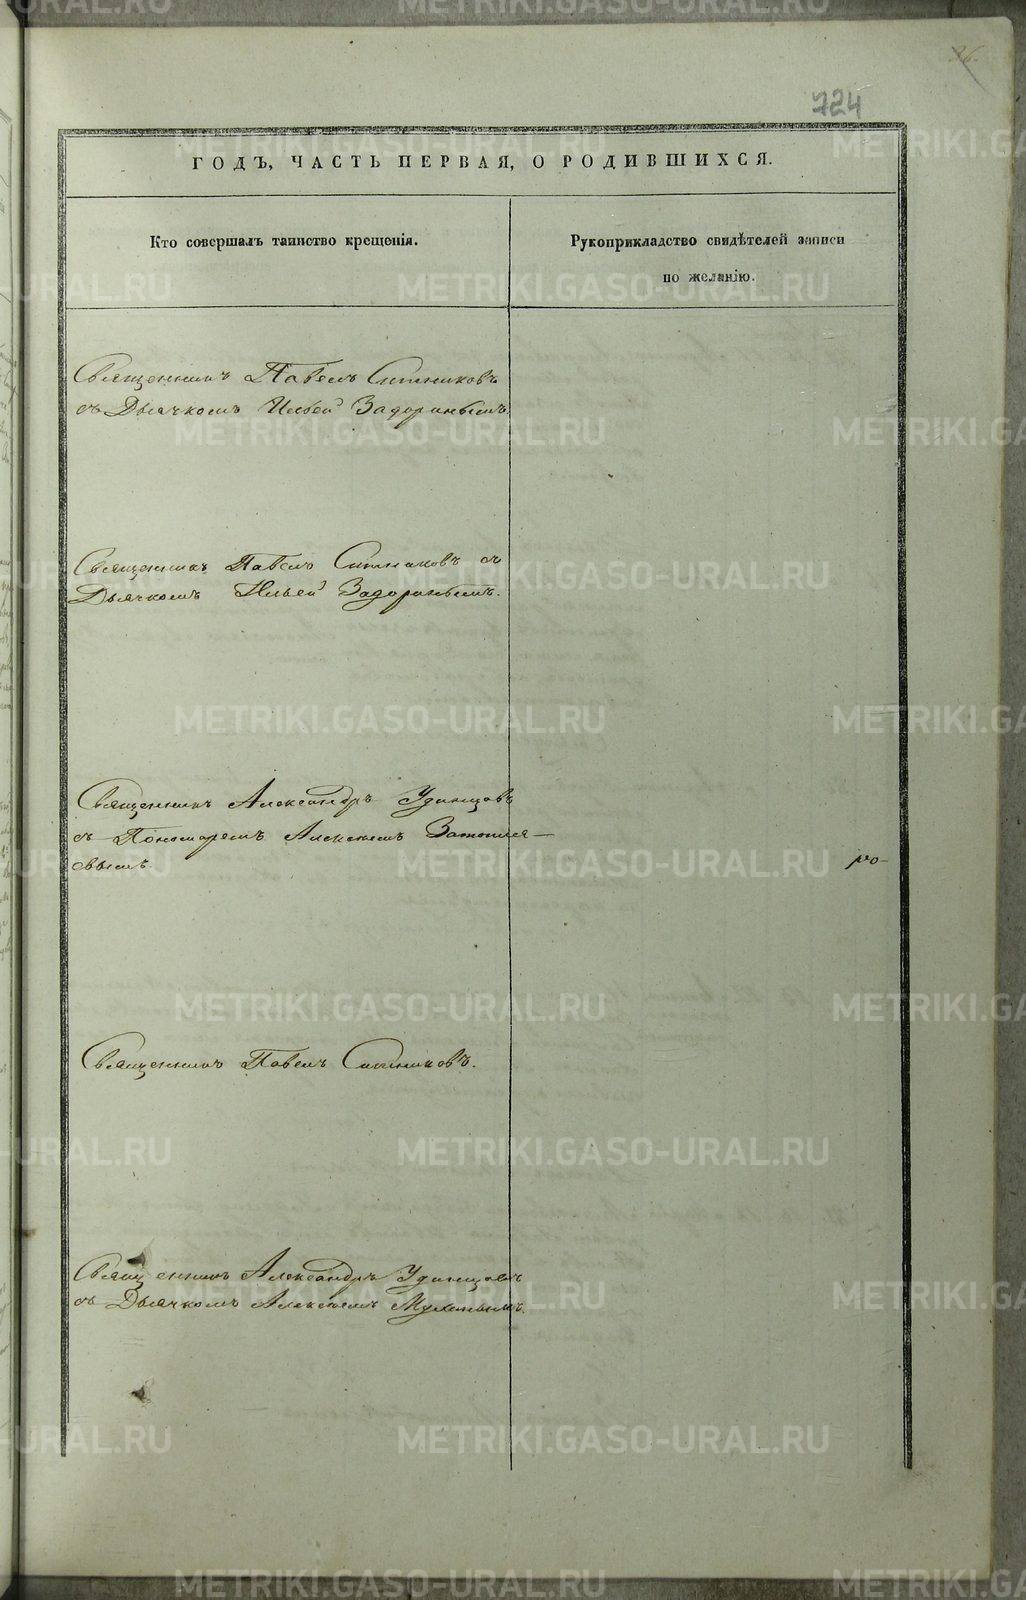 26.
724
ГОДЪ, ЧАСТЬ ПЕРВАЯ, О РОДИВШИХСЯ.
Кто совершалъ таинство крещенія.
Рукоприкладство свидѣтелей записи
по желанію.
Священникъ Павелъ Ситниковъ
съ Дьячкомъ Ильей Задоринымъ.
Священникъ Павелъ Ситниковъ съ
Дьячкомъ Ильей Задоринымъ.
Священникъ Александръ Удинцовъ
съ Пономаремъ Алексѣемъ
евымъ
Священникъ Павелъ Ситниковъ.
Священникъ Александръ Удинцовъ
съ Дьячкомъ Алексѣемъ
METRIKI.GASO-URAL.RU